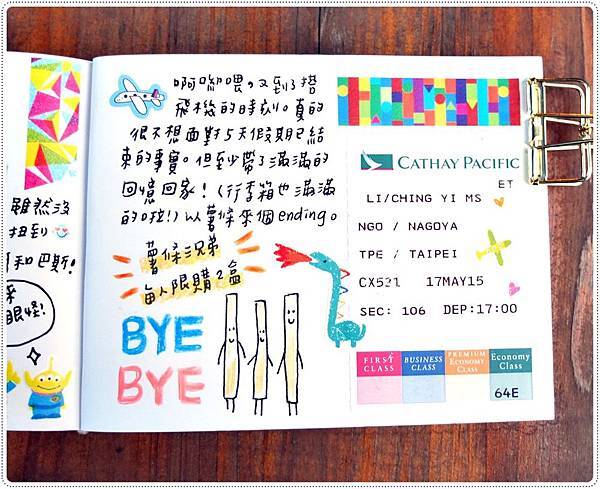 雖然沒
扭到
和巴斯!
眼怪!
啊呦喂,又到了搭
飛機的時刻。真的
很不想面對5天假期已結
束的事實。但至少帶了滿滿的
回憶回家!(行李箱也滿滿
的啦!)以薯條來個ending。
薯條三兄弟
每人限購2盒
BYE
BYE
CATHAY PACIFIC
ET
LI/CHING YI MS
NGO / NAGOYA
TPE / TAIPEI
CX531 17MAY15
SEC: 106 DEP:17:00
FIRST CLASS
BUSINESS CLASS
PREMIUM ECONOMY CLASS
Economy Class
64E